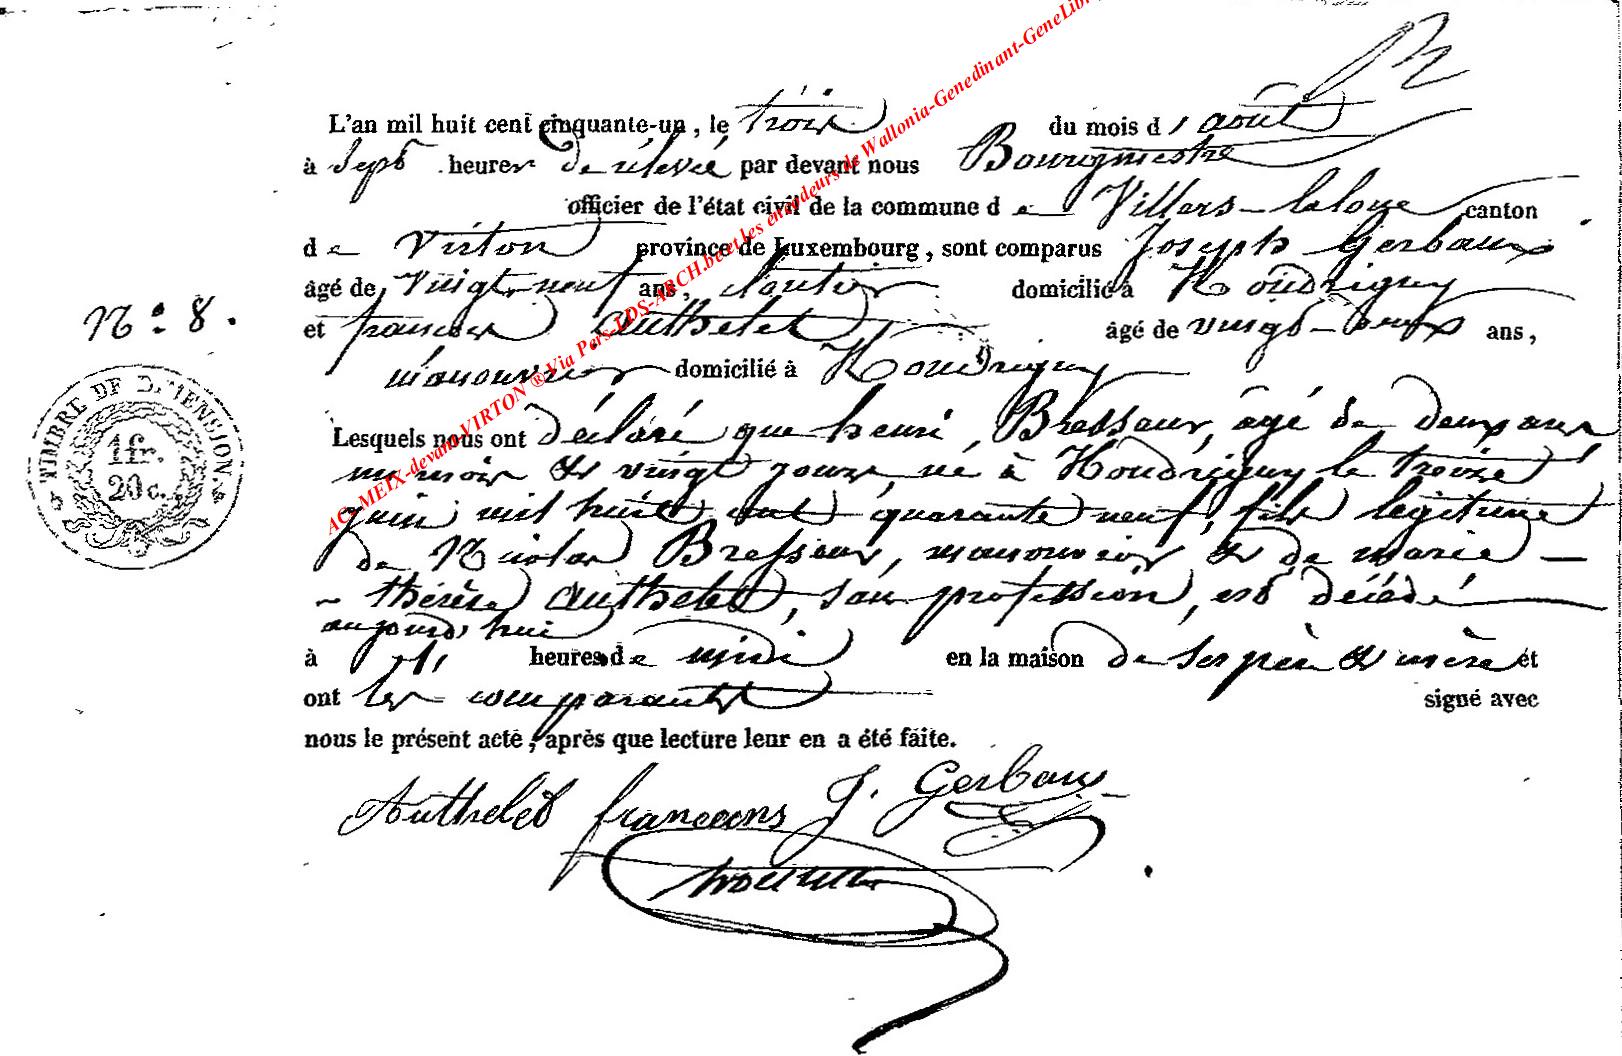 L'an mil huit cent cinquante-un, le trois du mois d' août
à sept heures de relevée par devant nous Bourgmestre
officier de l'état civil de la commune de Villers-laloue canton
de Virton province de Luxembourg, sont comparus Joseph Gerbaux
âgé de vingt-neuf ans, cloutier domicilié à Houdrigny
N° 8.
et francois Authelet âgé de vingt-deux ans,
manouvrier domicilié à Houdrigny
TIMBRE DE DIMENSION.
1 fr.
20 c.
Lesquels nous ont déclaré que henri Bresseur, âgé de deux ans
un mois et vingt jours, né à Houdrigny le treize
juin mil huit cent quarante neuf, fils légitime
de Nicolas Bresseur, manouvrier et de marie
thérèse Authelet, san profession, est décédé
aujourd'hui
à heures de midi en la maison de ses père et mère et
ont les comparants signé avec
nous le présent acte, après que lecture leur en a été faite.
Authelet francoins J. Gerbaux
AC-MEIX-devant-VIRTON ® Via Pers-LDS-ARCH.be et les encodeurs de Wallonia-Genedinant-GeneLib